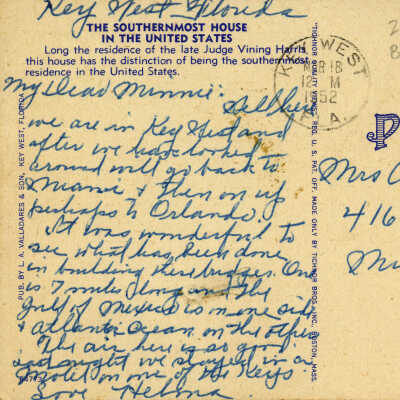 Key West Florida
THE SOUTHERNMOST HOUSE
IN THE UNITED STATES
Long the residence of the late Judge Vining Harris
this house has the distinction of being the southernmost
residence in the United States.
My Dear Minnie:
we are in Key West and
after we have looked
around will go back to
Miami & then on up
perhaps to Orlando.
It was wonderful to
see what has been done
in building these bridges. One
is 7 miles long and the
Gulf of Mexico is on one side
& Atlantic Ocean on the other
The air here is so good
and night we stayed in a
Motel on one of the Keys
Love Helma
PUB. BY L. A. VALLADARES & SON, KEY WEST, FLORIDA
"TICHNOR QUALITY VIEWS," REG. U. S. PAT. OFF. MADE ONLY BY TICHNOR BROS., INC., BOSTON, MASS.
KEY WEST
MAR 18
12 M
1952
FLA.
P
Mrs
416